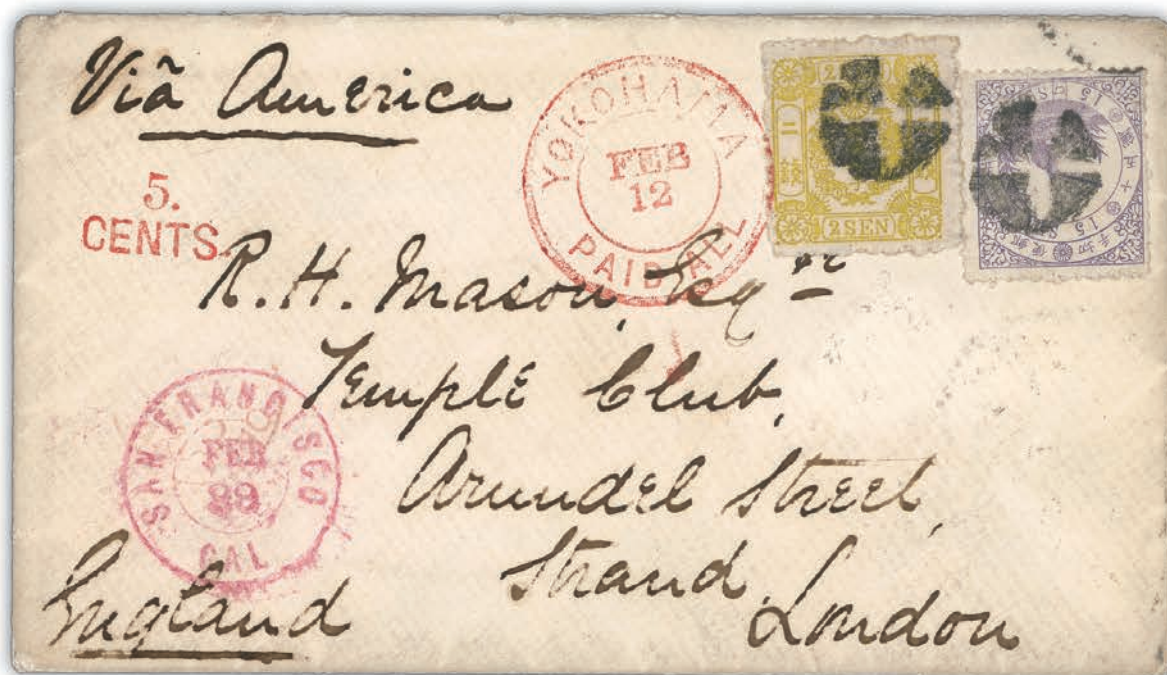 Viã America
YOKOHAMA
FEB
12
PAID ALL
5.
CENTS.
2 SEN
15
R. H. Mason, Esqre
Temple Club,
Arundel Street,
Strand,
London
England
SAN FRANCISCO
FEB
CAL